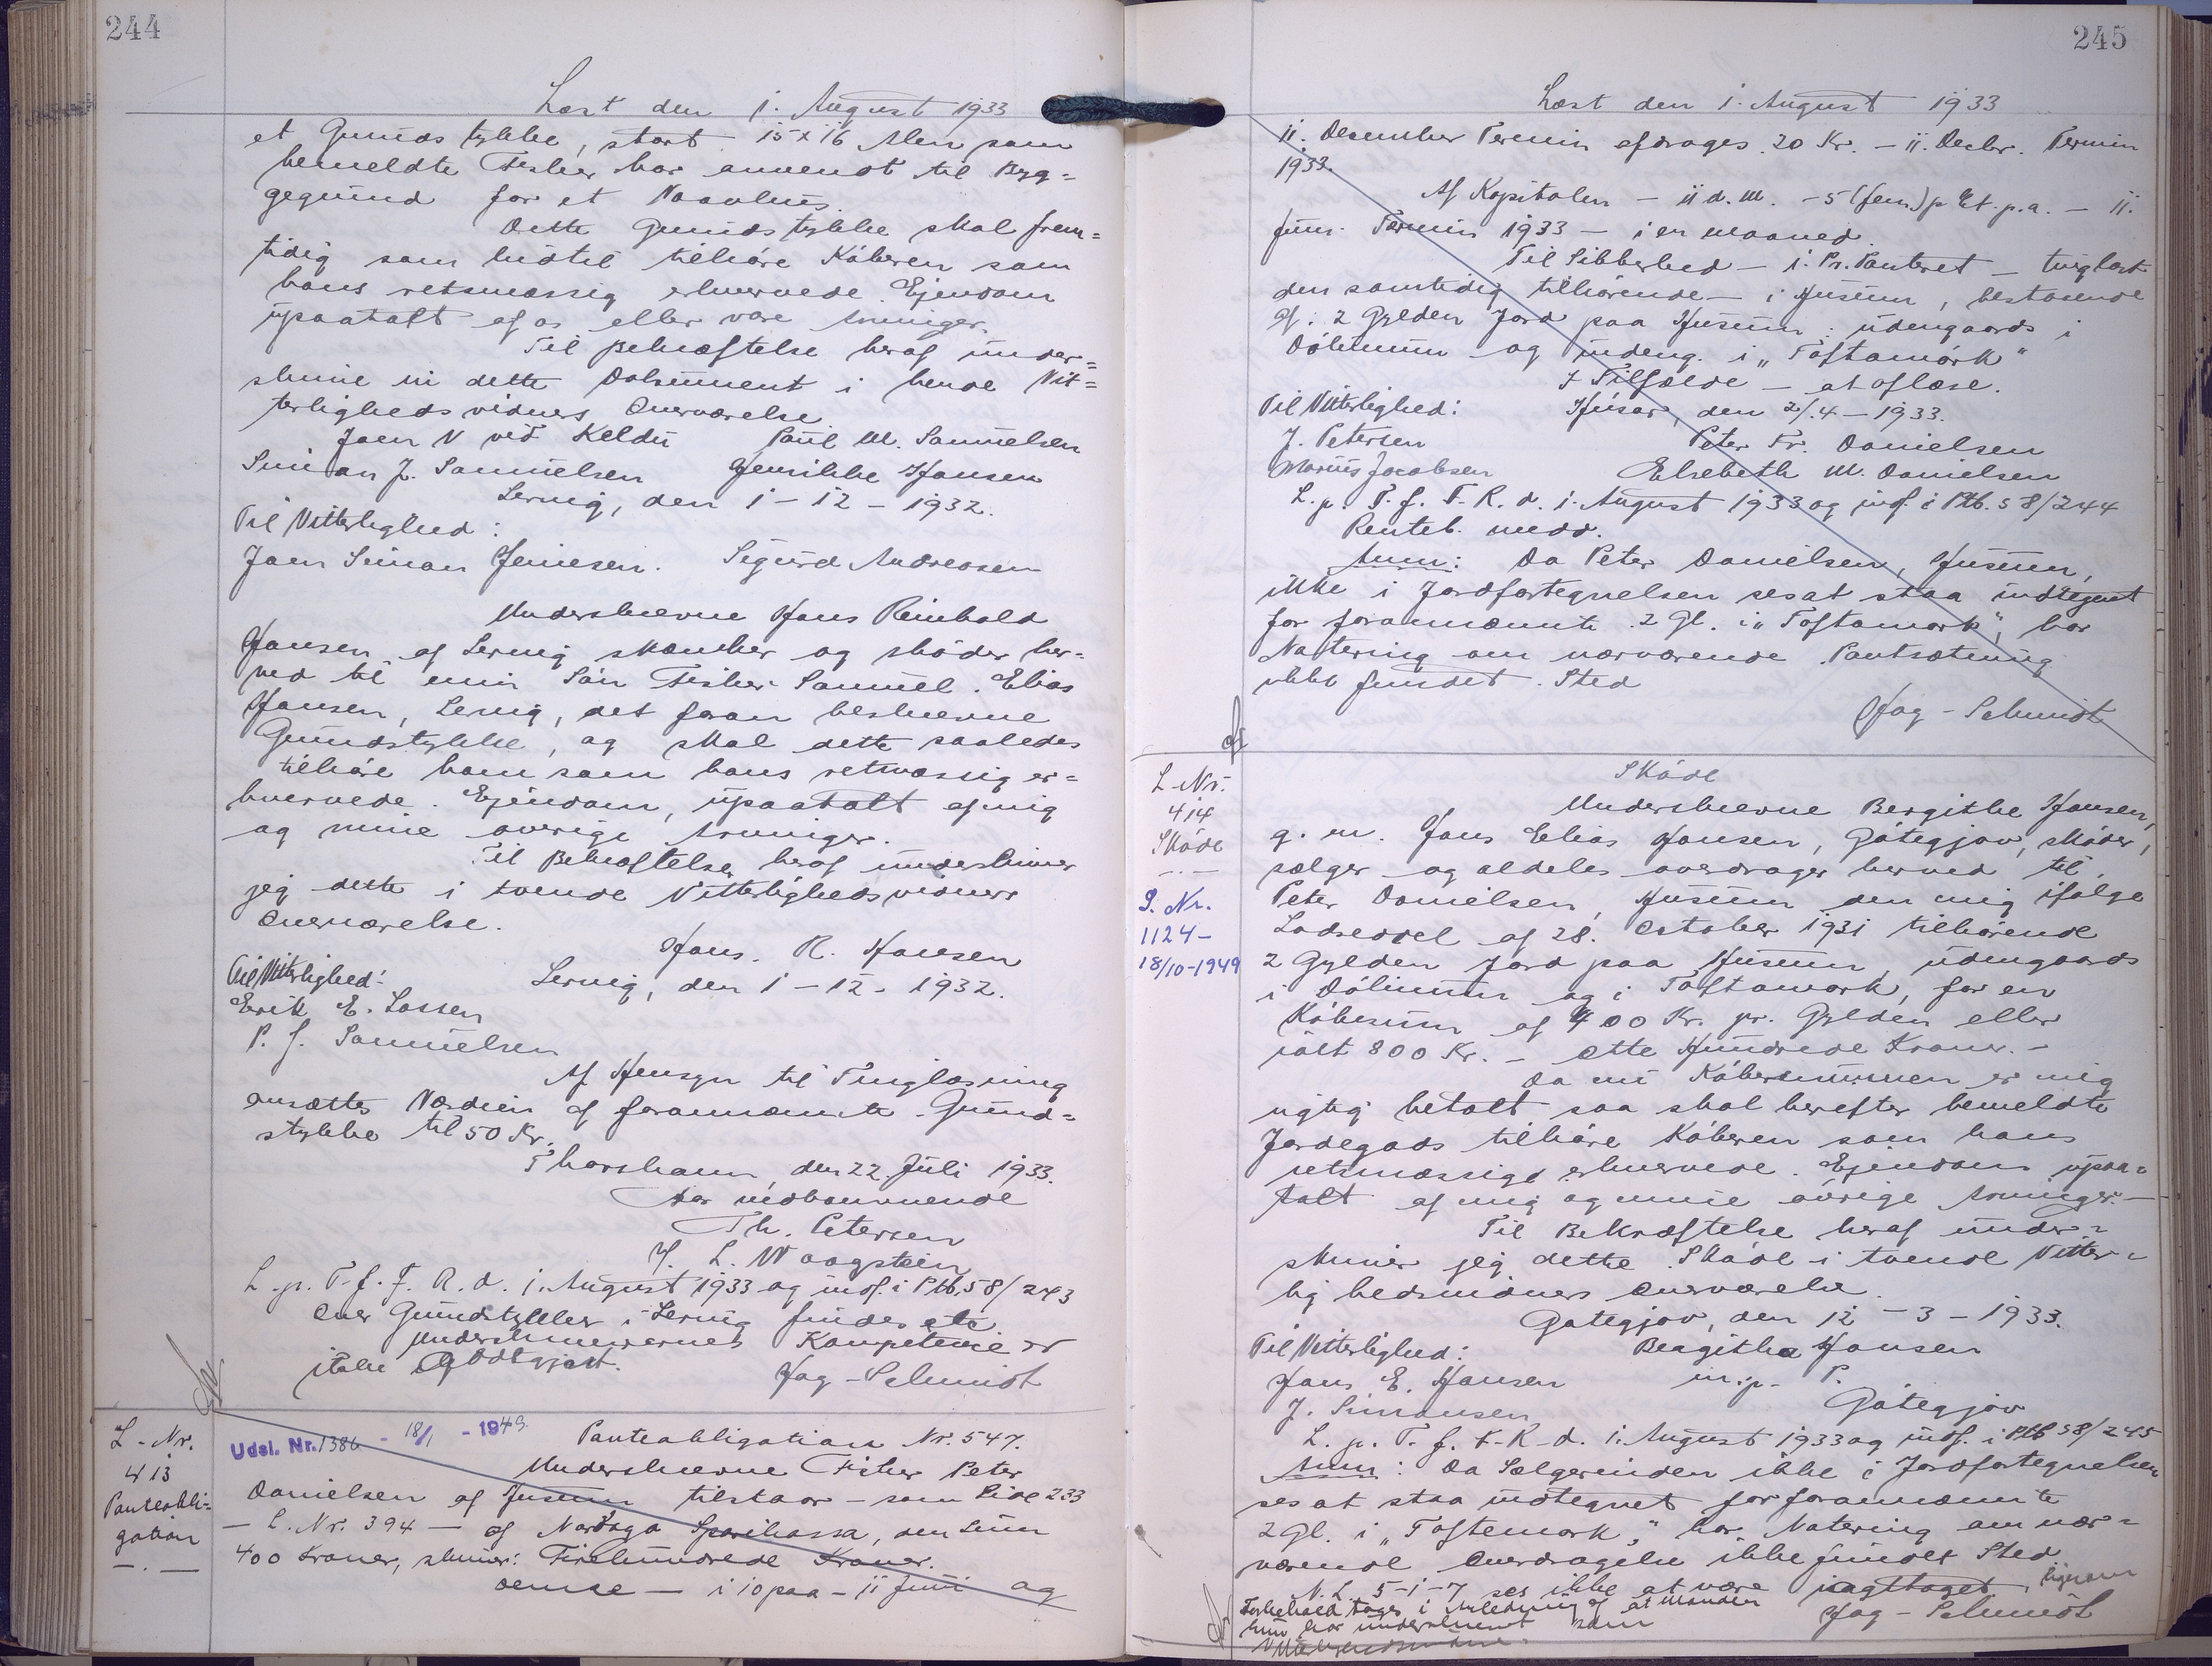 244
Læst den 1. August 1933
et Grundstykke, stort 15 x 16 Alen som
bemeldte Fisker har anvendt til Byg=
gegrund for et Naavhus.
Dette Grundstykke skal frem=
tidig som hidtil tilhøre Køberen som
hans retsmæssig erhvervede Ejendom
upaatalt af os eller vore Arvinger.
Til Bekræftelse heraf under=
skrive vi dette Dokument i tvende Vit=
terlighedsvidners Overværelse
Joen N við Keldu Poul M. Samuelsen
Simon J. Samuelsen Henrikke Hansen
Lervig, den 1-12-1932.
Til Vitterlighed:
Joen Simon Jensen. Sigurd Andreasen
Underskrevne Hans Reinhold
Hansen af Lervig skænker og skøder her=
ved til min Søn Fisker Samuel Elias
Hansen, Lervig, det foran beskrevne
Grundstykke, og skal dette saaledes
tilhøre ham som hans retmæssig er=
hvervede Ejendom, upaatalt af mig
og mine øvrige Arvinger.
Til Bekræftelse heraf underskriver
jeg dette i tvende Vitterlighedsvidners
Overværelse.
Hans. R. Hansen
Til Vitterlighed: Lervig, den 1-12-1932.
Erik E. Lassen
P. J. Samuelsen
Af Hensyn til Tinglæsning
ansættes Værdien af forannævnte Grund=
stykke til 50 Kr.
Thorshavn, den 22. Juli 1933.
For vedkommende
Th. Petersen
H. L. Waagstein
L. p. T. f. F. R. d. 1. August 1933 og indf. i Ptb. 58/243
Over Grundstykker i Lervig findes etc
Underskrivernes Kompetence er
ikke godtgjort.
Hag-Schmidt
L-Nr.
413
Panteobli=
gation
Udsl. Nr. 1386 - 18/1 - 1949.
Panteobligation Nr. 547.
Underskrevne Fisker Peter
Danielsen af Husum tilstaar - som Side 233
- L. Nr. 394 - af Norðoya Sparikassa, den Sum
400 Kroner, skriver: Firehundrede Kroner.
denne - i 10 paa - 11 Juni og
245
Læst den 1. August 1933
11. December Termin afdrages 20 Kr. - 11. Decbr. Termin
1933.
Af Kapitalen - 11 d. M. - 5 (fem) p Ct. p.a. - 11.
Juni Termin 1933 - i en Maaned.
Til Sikkerhed - 1. Pr. Panteret - tinglæst
den samtidig tilhørende - i Husum, bestaaende
af: 2 Gylden Jord paa Husum: udengaards i
Dølinum og indeng. i "Toftamørk"
I Tilfælde - at aflæse.
Til Vitterlighed: Húsar, den 2/4-1933.
J. Petersen Peter Fr. Danielsen
Marius Jacobsen Elsebeth M. Danielsen
L. p. T. f. F. R. d. 1. August 1933 og indf. i Ptb. 58/244
Renteb. medd.
Anm: Da Peter Danielsen, Husum,
ikke i Jordfortegnelsen ses at staa indtegnet
for forannævnte 2 Gl. i "Toftamørk", har
Notering om nærværende Pantsætning
ikke fundet Sted
Hag-Schmidt
L-Nr.
414
Skøde
S. Nr.
1124-
18/10-1949
Skøde
Underskrevne Bergithe Hansen,
g. m. Hans Elias Hansen, Gøtegjov, skøder,
sælger og aldeles overdrager herved til
Peter Danielsen, Husum den mig ifølge
Lodseddel af 28. October 1931 tilhørende
2 Gylden Jord paa Husum, udengaards
i Dølinum og i Toftamørk, for en
Købesum af 400 Kr. pr. Gylden eller
ialt 800 Kr. - Otte Hundrede Kroner. -
Da nu Købesummen er mig
rigtig betalt saa skal herefter bemeldte
Jordegods tilhøre Køberen som hans
retmæssige erhvervede Ejendom upaa=
talt af mig og mine øvrige Arvinger. -
Til Bekræftelse heraf under=
skriver jeg dette Skøde i tvende Vitter=
lighedsvidners Overværelse.
Gøtegjov, den 12-3-1933.
Til Vitterlighed: Bergitha Hansen
Hans E. Hansen m.p. P.
J. Simonsen Gøtegjov
L. p. T. f. F. R. d. 1. August 1933 og indf. i Ptb 58/245
Anm: Da Sælgerinden ikke i Jordfortegnelsen
ses at staa indtegnet for forannævnte
2 Gl. i "Toftemørk," har Notering om nær=
værende Overdragelse ikke fundet Sted.
N. L. 5-1-7 ses ikke at være iagttaget, ligesom
Forbehold tages i Anledning af at Manden
kun har underskrevet som
Vitterlighedsvidne.
Hag-Schmidt